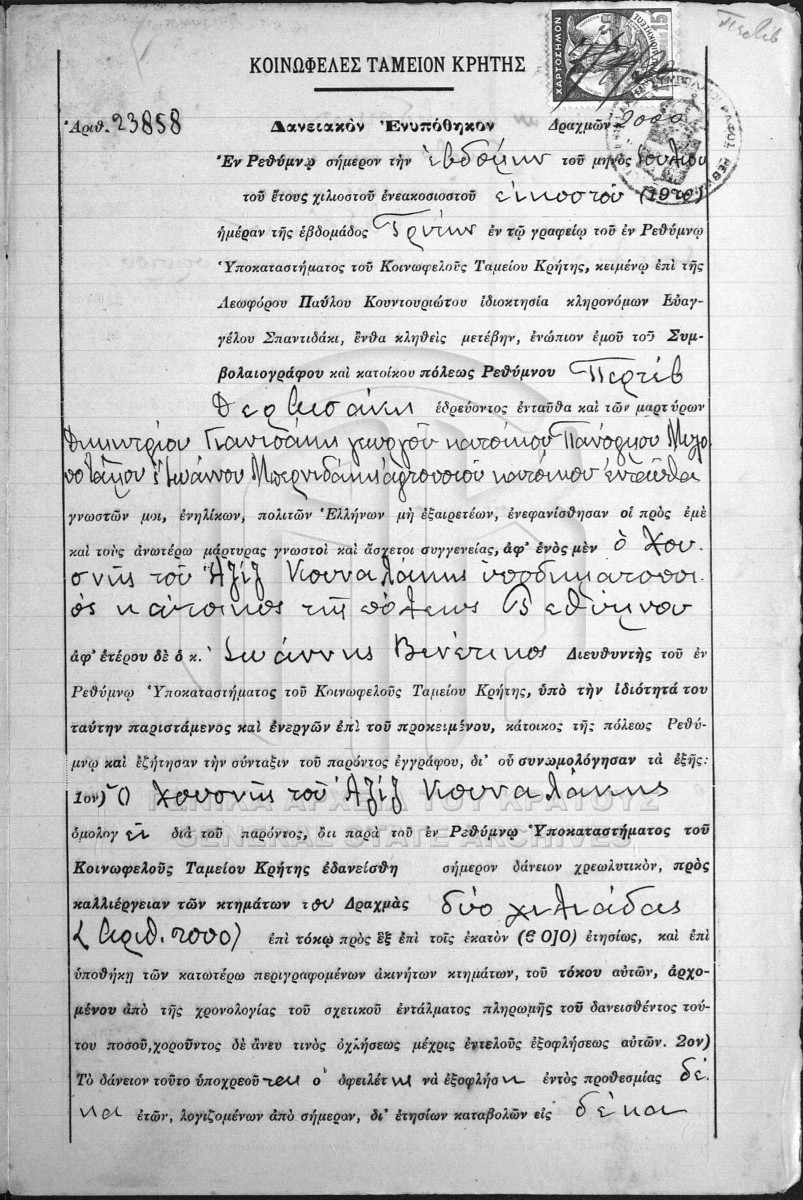 Περτέβ
ΚΟΙΝΩΦΕΛΕΣ ΤΑΜΕΙΟΝ ΚΡΗΤΗΣ
ΧΑΡΤΟΣΗΜΟΝ 15
Ἀριθ. 23858 Δανειακὸν Ἐνυπόθηκον Δραχμῶν 2000
Ἐν Ρεθύμνῳ σήμερον τὴν ἑβδόμην τοῦ μηνὸς Ἰουλίου
τοῦ ἔτους χιλιοστοῦ ἐνεακοσιοστοῦ εἰκοστοῦ (1920)
ἡμέραν τῆς ἑβδομάδος Τρίτην ἐν τῷ γραφείῳ τοῦ ἐν Ρεθύμνῳ
Ὑποκαταστήματος τοῦ Κοινωφελοῦς Ταμείου Κρήτης, κειμένῳ ἐπὶ τῆς
Λεωφόρου Παύλου Κουντουριώτου ἰδιοκτησία κληρονόμων Εὐαγ-
γέλου Σπαντιδάκι, ἔνθα κληθεὶς μετέβην, ἐνώπιον ἐμοῦ τοῦ Συμ-
βολαιογράφου καὶ κατοίκου πόλεως Ρεθύμνου Περτέβ
Δερβισάκη ἑδρεύοντος ἐνταῦθα καὶ τῶν μαρτύρων
Δημητρίου Γιανισάκη γεωργοῦ κατοίκου Πανόρμου Μυλο
ποτάμου & Ἰωάννου Μπερνιδάκη ἀρτοποιοῦ κατοίκου ἐνταῦθα
γνωστῶν μοι, ἐνηλίκων, πολιτῶν Ἑλλήνων μὴ ἐξαιρετέων, ἐνεφανίσθησαν οἱ πρὸς ἐμὲ
καὶ τοὺς ἀνωτέρω μάρτυρας γνωστοὶ καὶ ἄσχετοι συγγενείας, ἀφ' ἑνὸς μὲν ὁ Χου-
σνῆς τοῦ Ἀζὶζ Κουναλάκης ὑποδηματοποι-
ὸς κάτοικος τῆς πόλεως Ρεθύμνου
ἀφ' ἑτέρου δὲ ὁ κ. Ἰωάννης Βενέτικος Διευθυντὴς τοῦ ἐν
Ρεθύμνῳ Ὑποκαταστήματος τοῦ Κοινωφελοῦς Ταμείου Κρήτης, ὑπὸ τὴν ἰδιότητά του
ταύτην παριστάμενος καὶ ἐνεργῶν ἐπὶ τοῦ προκειμένου, κάτοικος τῆς πόλεως Ρεθύ-
μνῳ καὶ ἐζήτησαν τὴν σύνταξιν τοῦ παρόντος ἐγγράφου, δι' οὗ συνωμολόγησαν τὰ ἑξῆς:
1ον) Ὁ Χουσνῆς τοῦ Ἀζὶζ Κουναλάκης
ΓΕΝΙΚΑ ΑΡΧΕΙΑ ΤΟΥ ΚΡΑΤΟΥΣ
ὁμολογεῖ διὰ τοῦ παρόντος, ὅτι παρὰ τοῦ ἐν Ρεθύμνῳ Ὑποκαταστήματος τοῦ
GENERAL STATE ARCHIVES
Κοινωφελοῦς Ταμείου Κρήτης ἐδανείσθη σήμερον δάνειον χρεωλυτικόν, πρὸς
καλλιέργειαν τῶν κτημάτων του Δραχμὰς δύο χιλιάδας
(ἀριθ. 2000) ἐπὶ τόκῳ πρὸς ἓξ ἐπὶ τοῖς ἑκατὸν (6 0]0) ἐτησίως, καὶ ἐπὶ
ὑποθήκῃ τῶν κατωτέρω περιγραφομένων ἀκινήτων κτημάτων, τοῦ τόκου αὐτῶν, ἀρχο-
μένου ἀπὸ τῆς χρονολογίας τοῦ σχετικοῦ ἐντάλματος πληρωμῆς τοῦ δανεισθέντος τού-
του ποσοῦ, χοροῦντος δὲ ἄνευ τινὸς ὀχλήσεως μέχρις ἐντελοῦς ἐξοφλήσεως αὐτῶν. 2ον)
Τὸ δάνειον τοῦτο ὑποχρεοῦται ὁ ὀφειλέτης νὰ ἐξοφλήσῃ ἐντὸς προθεσμίας δέ-
κα ἐτῶν, λογιζομένων ἀπὸ σήμερον, δι' ἐτησίων καταβολῶν εἰς δέκα